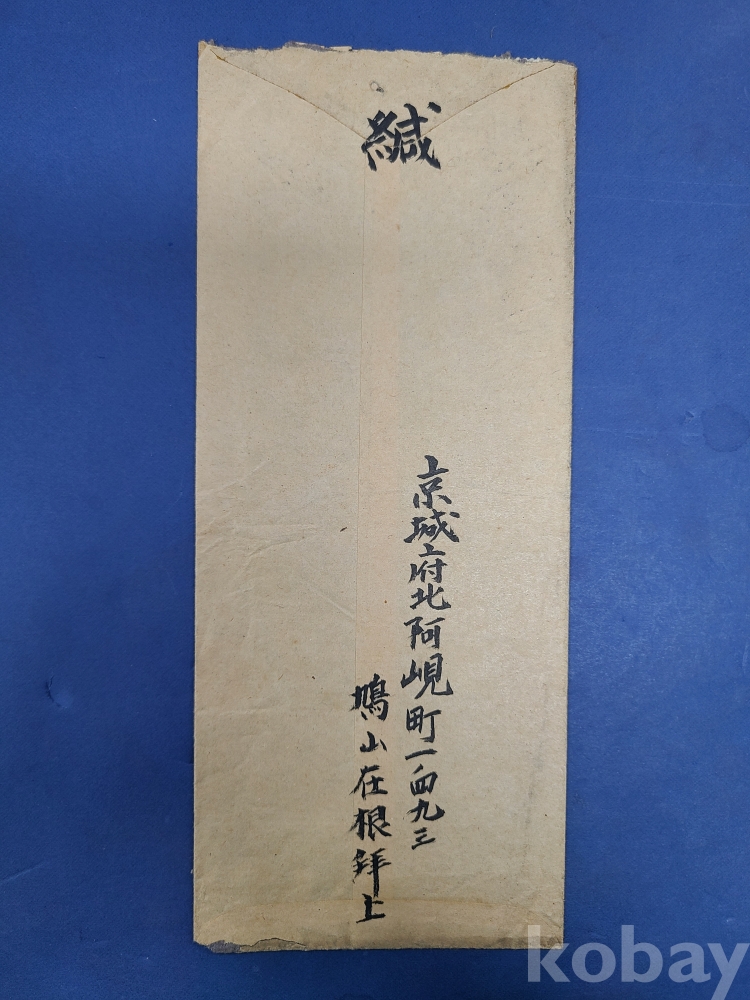 緘
京城府北阿峴町一ノ四九三
鳩山在根拜上
kobay